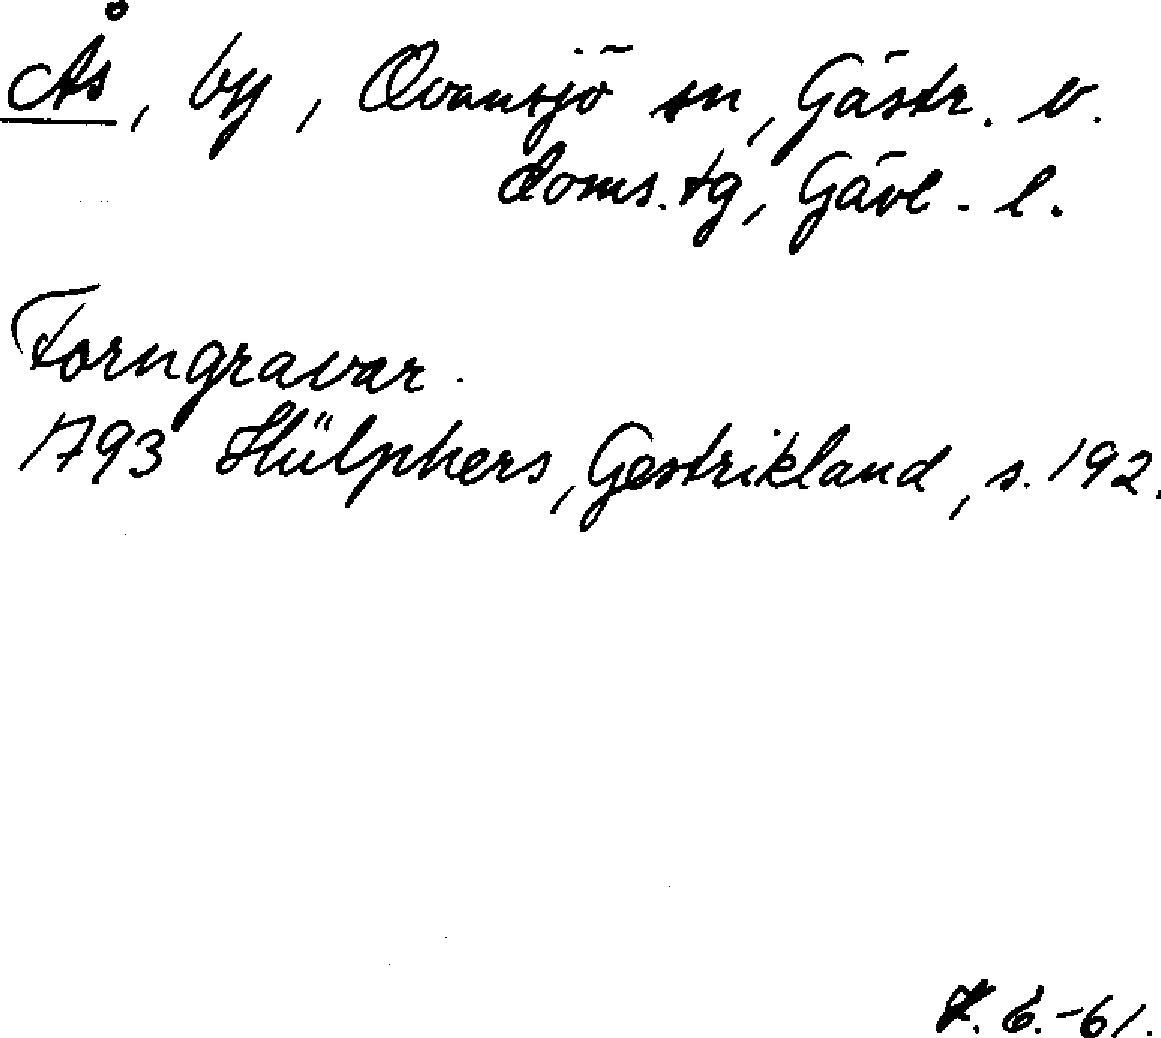 Ås, by, Ovansjö sn, Gästr. v.
doms.tg, Gävl. l.
Forngravar.
1793 Hülphers, Gestrikland, s. 192.
6.-61.